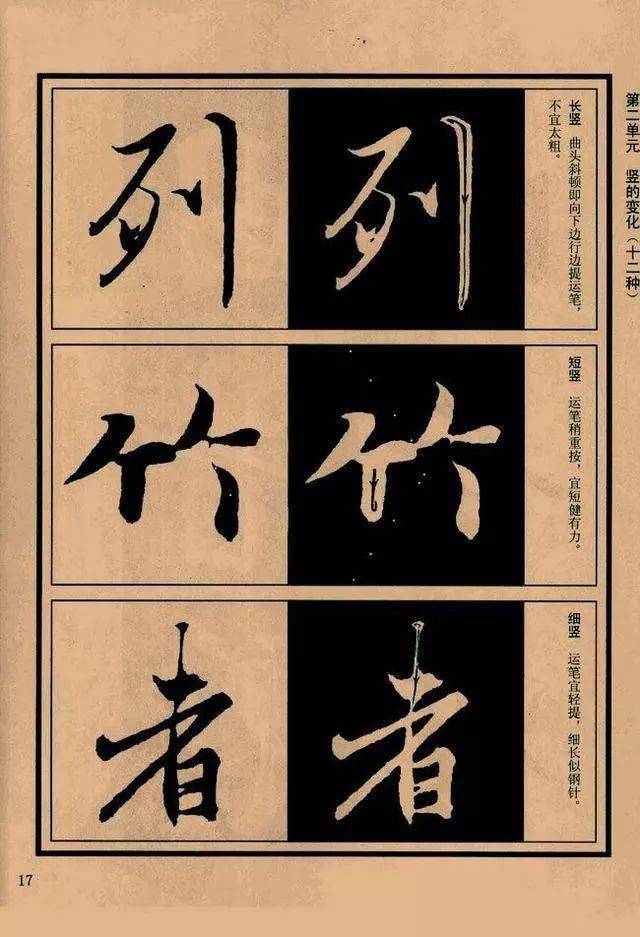 第二单元　竖的变化（十二种）
长竖　曲头斜顿即向下边行边提运笔，
不宜太粗。
列
列
短竖　运笔稍重按，宜短健有力。
竹
竹
细竖　运笔宜轻提，细长似钢针。
者
者
17